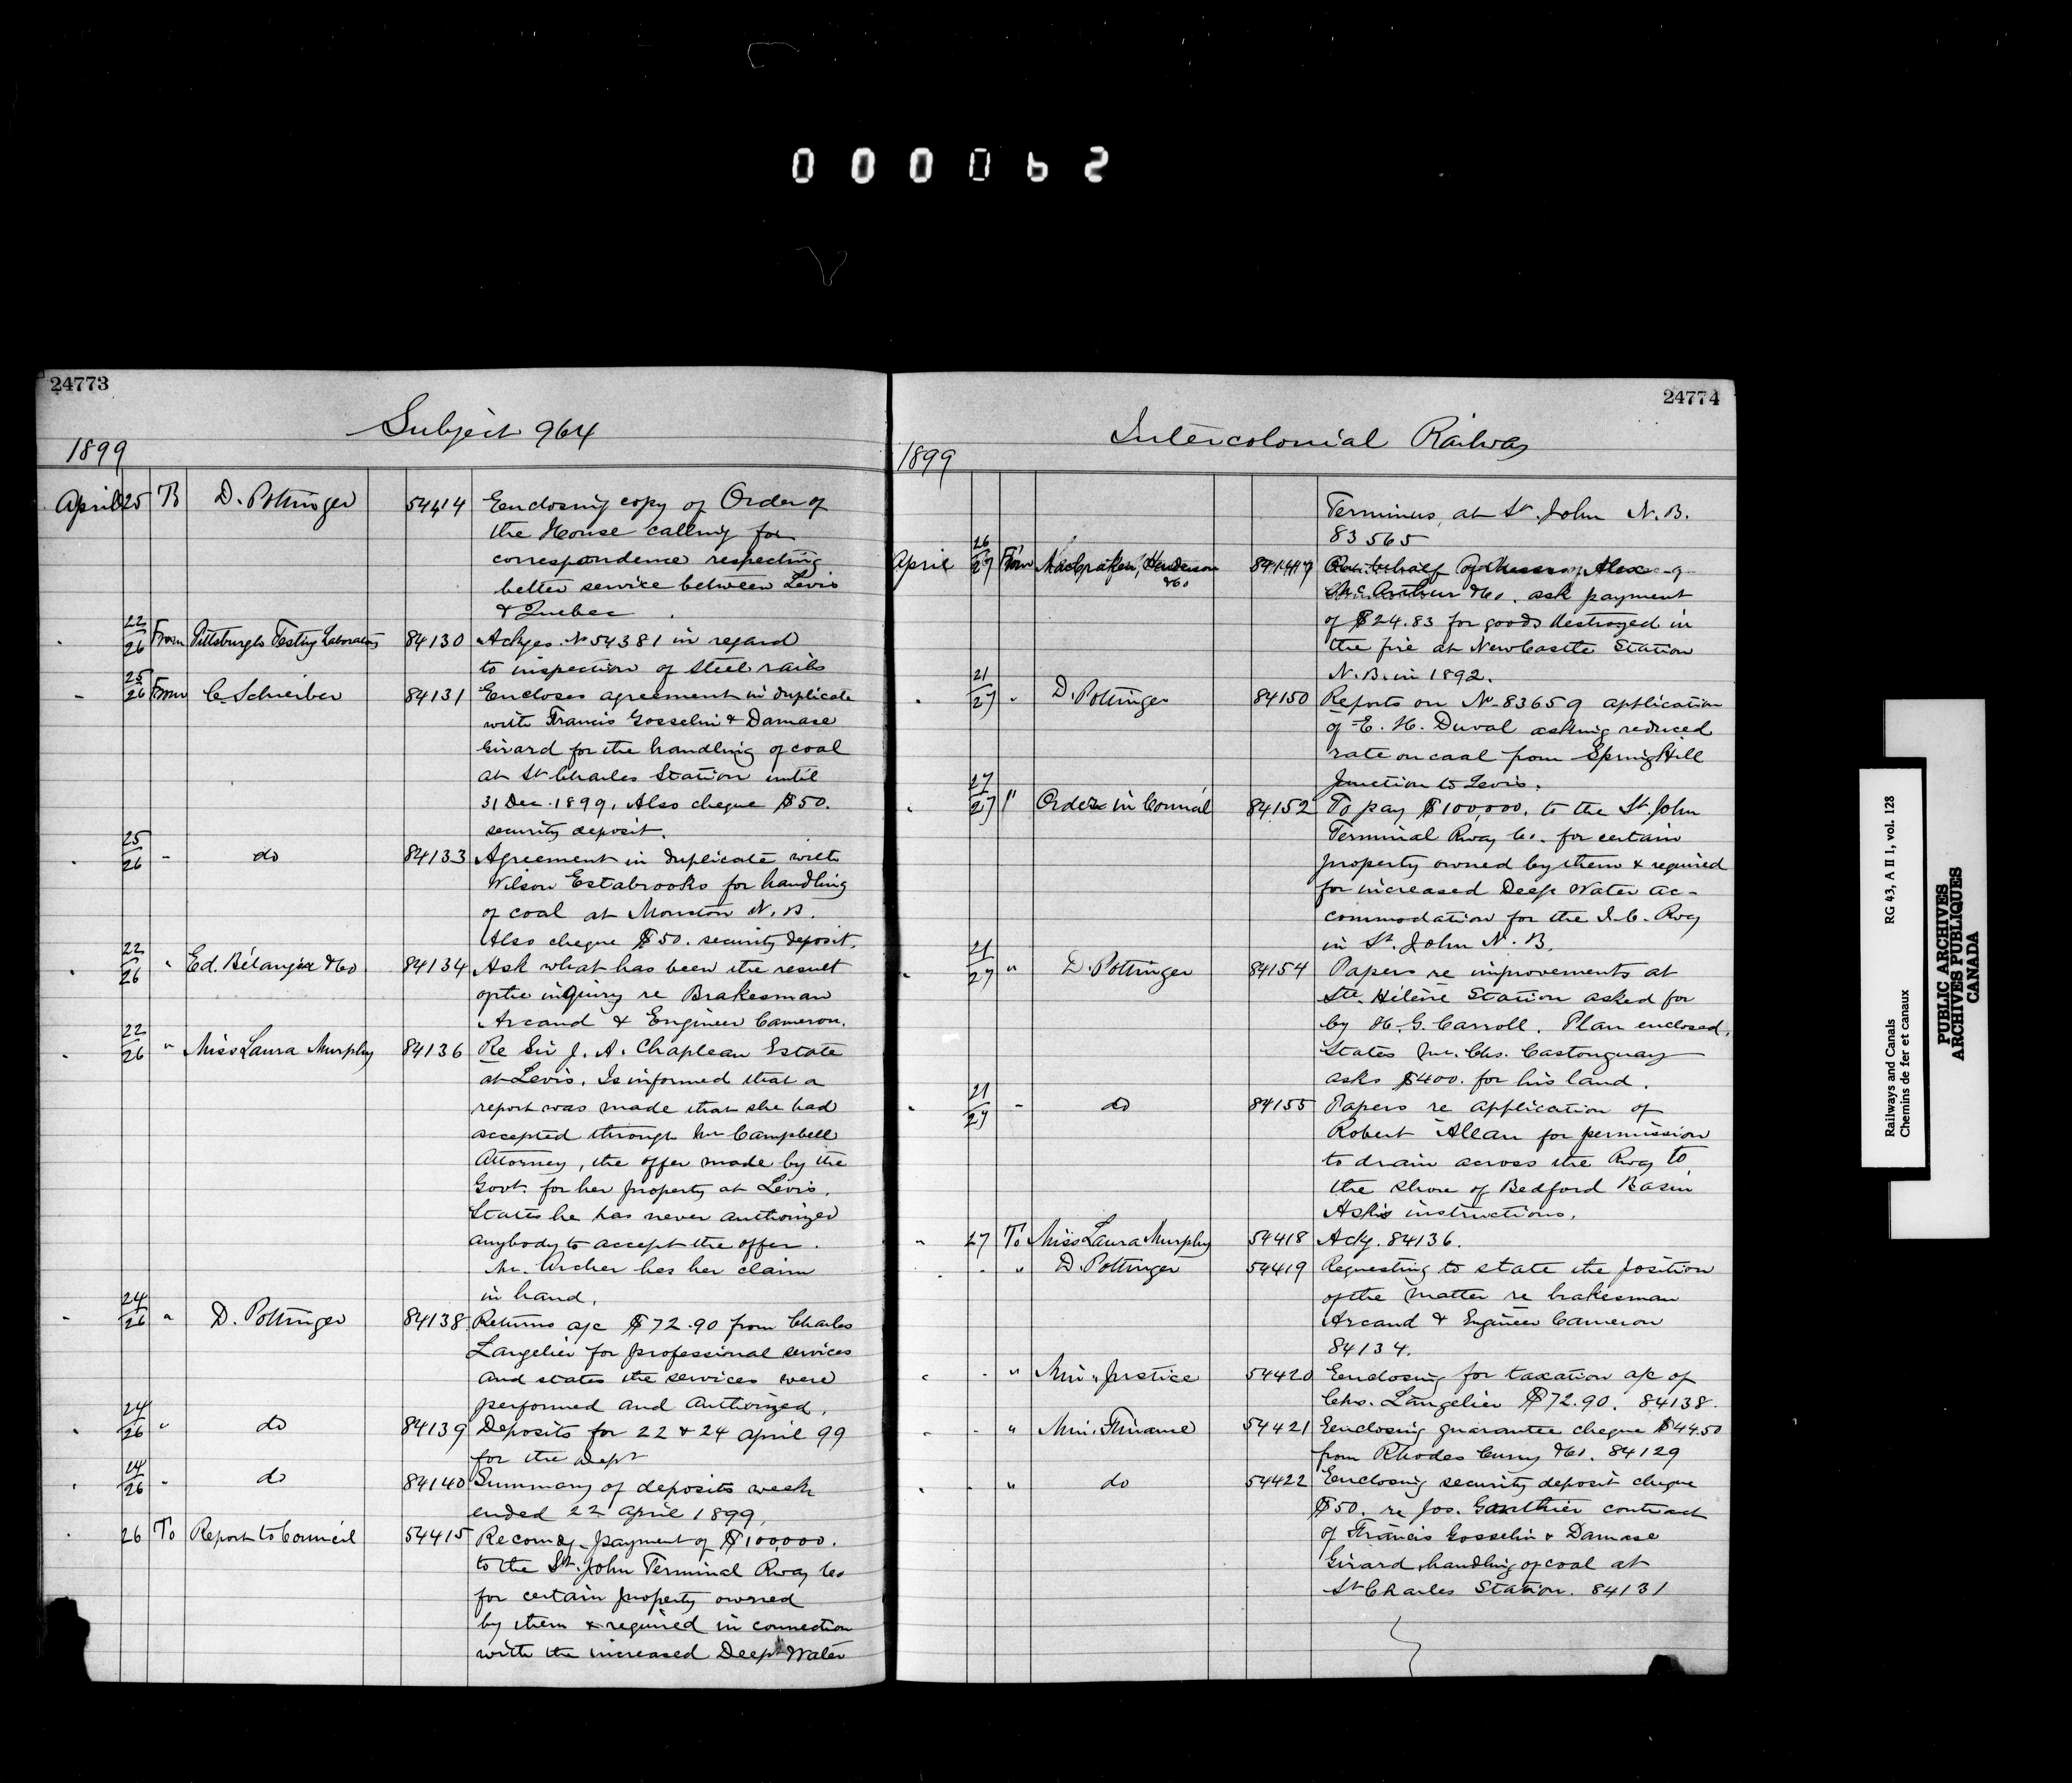 000062
24773
Subject 964
1899
April 25 To D. Pottinger 54414 Enclosing copy of Order of
the House calling for
correspondence respecting
better service between Levis
& Quebec
22/26 From Pittsburgh Testing Laboratory 84130 Ackges. No 54381 in regard
to inspection of steel rails
25/26 From C. Schreiber 84131 Encloses agreement in duplicate
with Francis Gosselin & Damase
Girard for the handling of coal
at St Charles Station until
31 Dec. 1899. Also cheque $50.
security deposit.
25/26 " do 84133 Agreement in duplicate with
Wilson Estabrooks for handling
of coal at Moncton N.B.
Also cheque $50. security deposit.
22/26 " Ed. Bélanger & Co 84134 Ask what has been the result
of the inquiry re Brakesman
Arcand & Engineer Cameron.
22/26 " Miss Laura Murphy 84136 Re Sir J. A. Chapleau Estate
at Levis. Is informed that a
report was made that she had
accepted through Mr Campbell
Attorney, the offer made by the
Govt. for her property at Levis.
States he has never authorized
anybody to accept the offer.
Mr. Archer has her claim
in hand.
24/26 " D. Pottinger 84138 Returns a/c $72.90 from Charles
Langelier for professional services
and states the services were
performed and authorized.
24/26 " do 84139 Deposits for 22 & 24 April 99
for the Dept
24/26 " do 84140 Summary of deposits week
ended 22 April 1899.
26 To Report to Council 54415 Recomdg. payment of $100,000.
to the St. John Terminal Rway Co
for certain property owned
by them & required in connection
with the increased Deep Water
24774
Intercolonial Railway
1899
Terminus, at St. John N.B.
83565
April 26/27 From MacCraken, Henderson
& Co 84149 On behalf of Messrs. Alex
McArthur & Co. ask payment
of $24.83 for goods destroyed in
the fire at NewCastle Station
N.B. in 1892.
21/27 " D. Pottinger 84150 Reports on No 83659 application
of E. H. Duval asking reduced
rate on coal from SpringHill
Junction to Levis.
27/27 " Order in Council 84152 To pay $100,000. to the St. John
Terminal Rway Co. for certain
property owned by them & required
for increased Deep Water ac-
commodation for the I.C. Rwy
in St. John N.B.
21/27 " D. Pottinger 84154 Papers re improvements at
Ste. Hélène Station asked for
by H. G. Carroll. Plan enclosed.
States Mr. Chs. Castonguay
asks $400. for his land.
21/27 " do 84155 Papers re application of
Robert Allan for permission
to drain across the Rway to
the shore of Bedford Basin
Asks instructions.
" 27 To Miss Laura Murphy 54418 Ackg. 84136.
" " D. Pottinger 54419 Requesting to state the position
of the matter re brakesman
Arcand & Engineer Cameron
84134.
" " Min. Justice 54420 Enclosing for taxation a/c of
Chs. Langelier $72.90. 84138.
" " Min. Finance 54421 Enclosing guarantee cheque $4450
from Rhodes Curry & Co. 84129
" " do 54422 Enclosing security deposit cheque
$50. re Jos. Gauthier contract
of Francis Gosselin & Damase
Girard, handling of coal at
St Charles Station. 84131
Railways and Canals RG 43, A II 1, vol. 128
Chemins de fer et canaux
PUBLIC ARCHIVES
ARCHIVES PUBLIQUES
CANADA